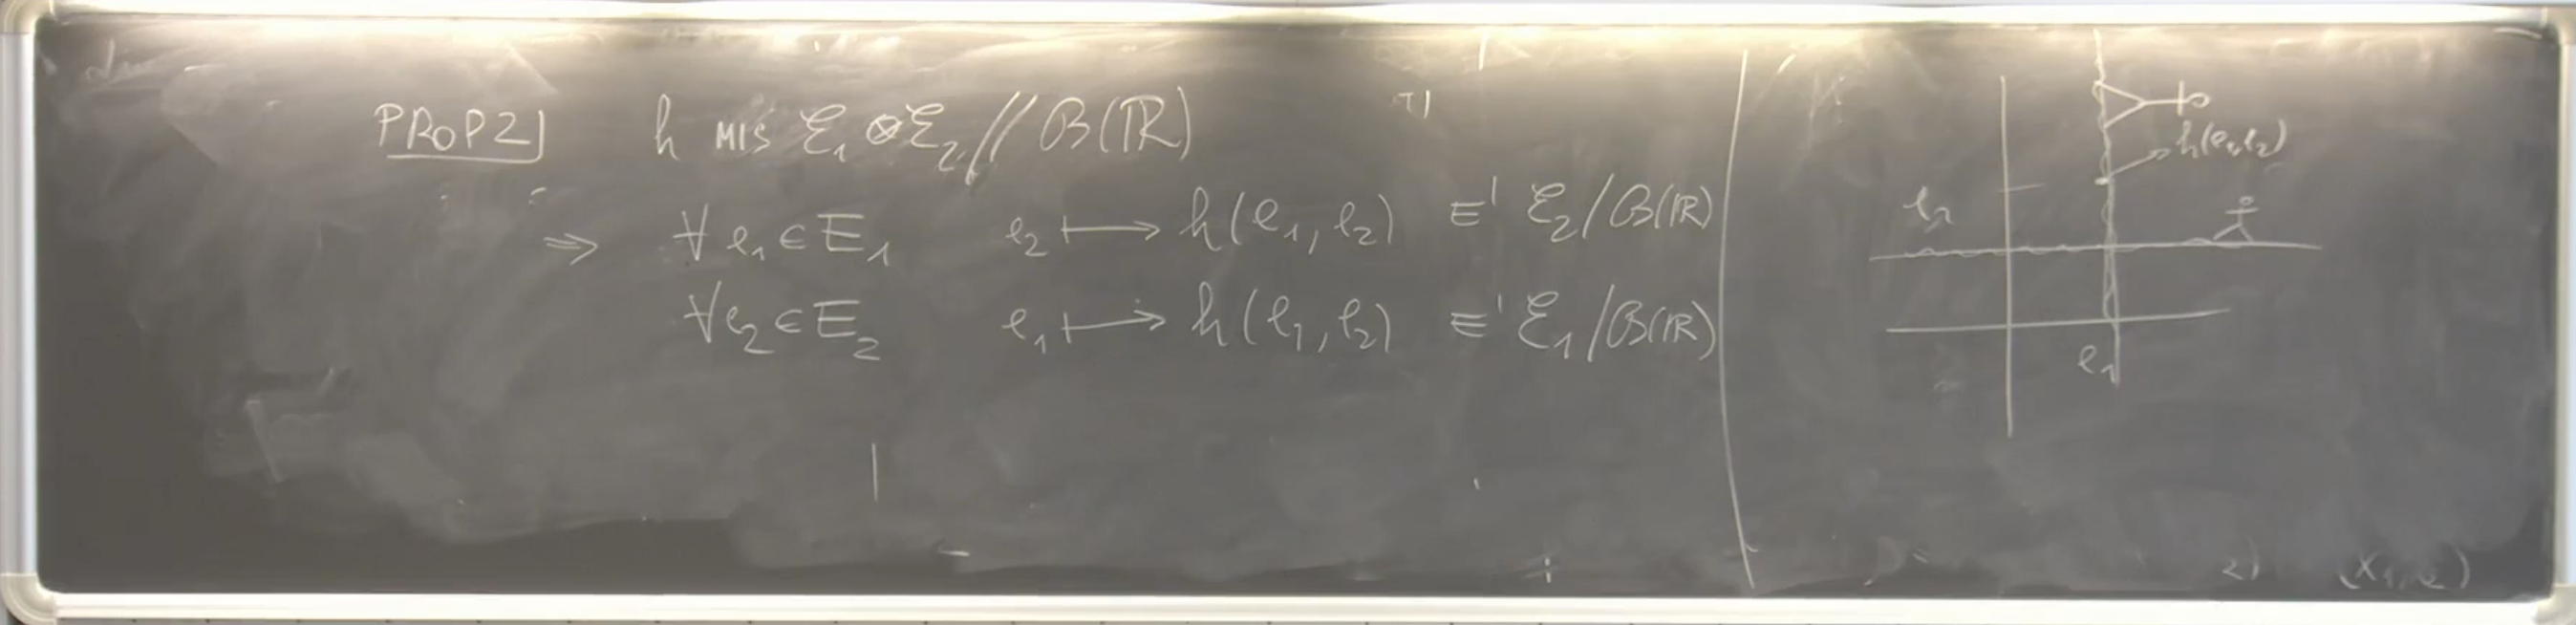 PROP 2 h MIS ℰ₁ ⊗ ℰ₂ // ℬ(ℝ)
⇒ ∀ e₁ ∈ E₁ e₂ ⟼ h(e₁, e₂) E' ℰ₂ / ℬ(ℝ)
∀ e₂ ∈ E₂ e₁ ⟼ h(e₁, e₂) E' ℰ₁ / ℬ(ℝ)
h(e₁, e₂)
e₂
e₁